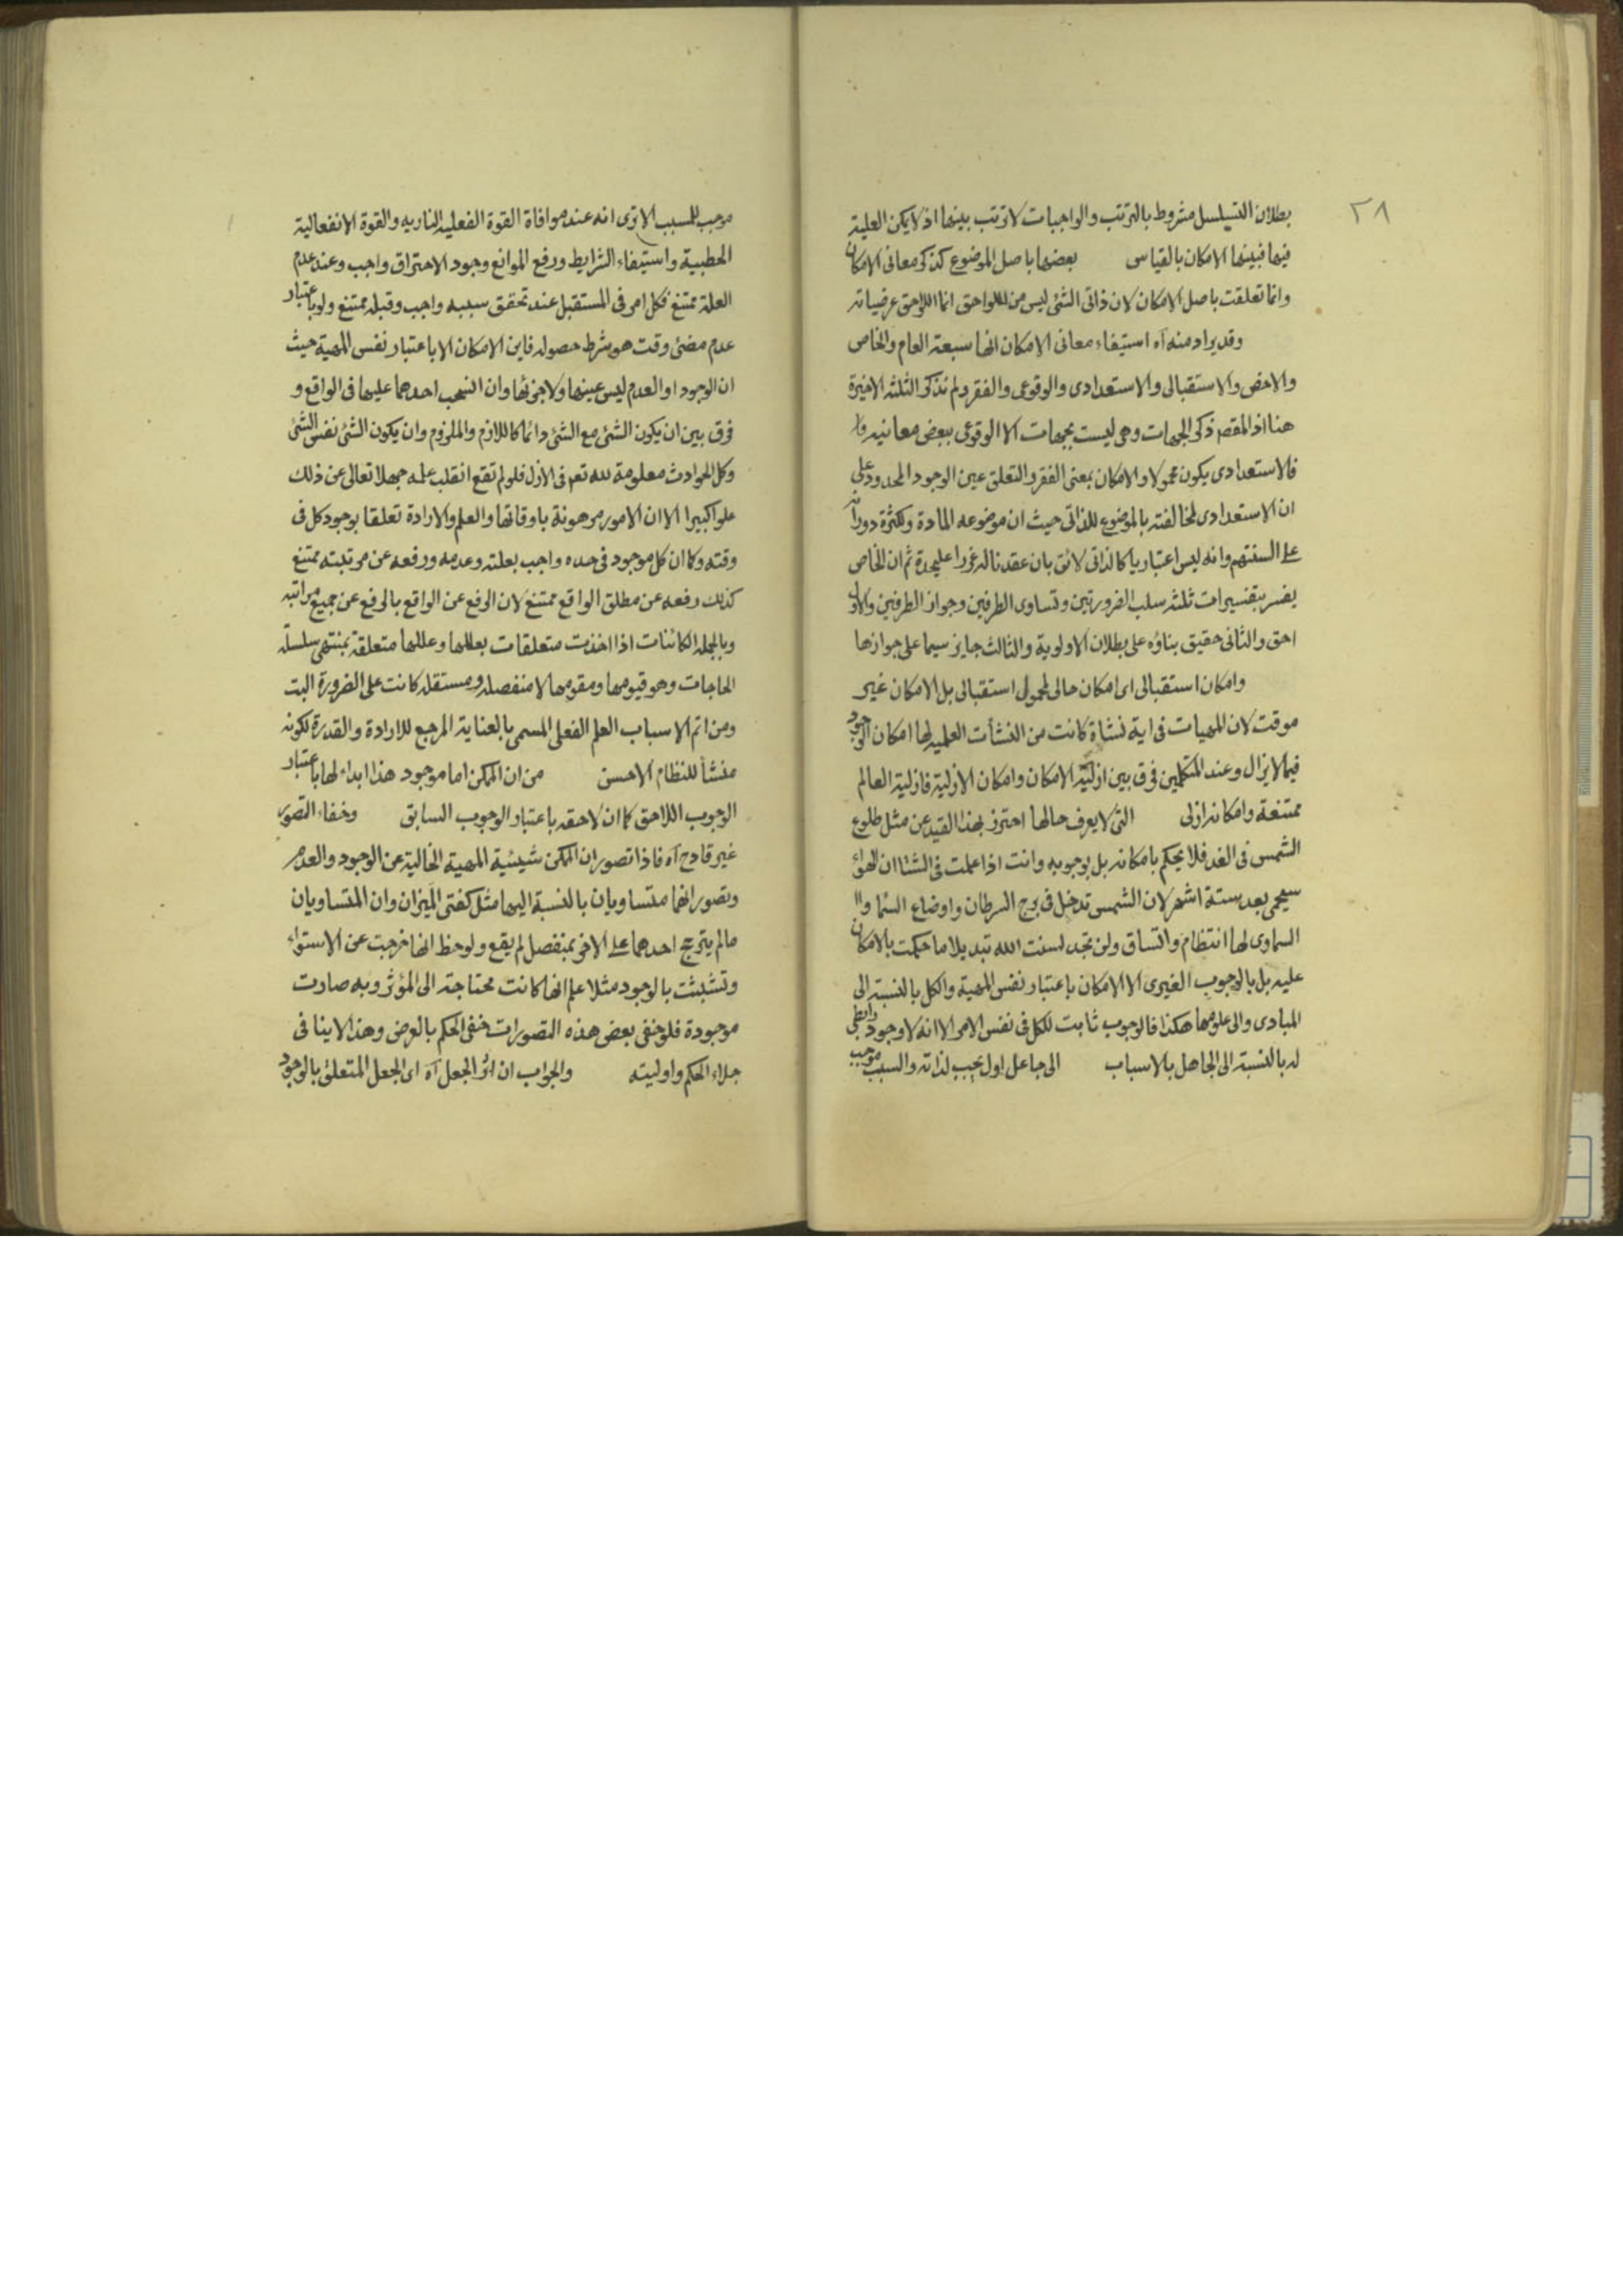 ٣٨
بطلان التسلسل مشروط بالترتب والواجبات لا ترتب بينها اذ لا يمكن العلية
فيها فبينها الامكان بالقياس بعضها باصل الموضوع كذكر معانى الامكان
وانما تعلقت باصل الامكان لان ذاتى الشئ ليس من اللواحق انما اللواحق عرضياته
وقد يراد منه آه استيفاء معانى الامكان انها سبعة العام والخاص
والاخص والاستقبالى والاستعدادى والوقوعى والفقر ولم نذكر الثلثة الاخيرة
هنا اذ المقصد ذكر الجهات وهى ليست بجهات الا الوقوعى ببعض معانيه
فالاستعدادى يكون محمولا والامكان بمعنى الفقر والتعلق عين الوجود المحدود على
ان الاستعدادى لمخالفته بالموضوع للذاتى حيث ان موضوعه المادة ولكثرة دورانه
على السنتهم وانه ليس اعتباريا كالذاتى لائق بان عقدنا له غررا عليحدة ثم ان الخاص
يفسر بتفسيرات ثلثة سلب الضرورتين وتساوى الطرفين وجواز الطرفين والاول
احق والثانى حقيق بناؤه على بطلان الاولوية والثالث جايز سيما على جوازها
وامكان استقبالى اى امكان حالى لمحمول استقبالى بل الامكان غير
موقت لان المهيات فى اية نشأة كانت من النشأت العلمية لها امكان الوجود
فيما لا يزال وعند المتكلمين فرق بين ازلية الامكان وامكان الازلية فازلية العالم
ممتنعة وامكانه ازلى التى لا يعرف حالها احترز بهذا القيد عن مثل طلوع
الشمس فى الغد فلا يحكم بامكانه بل بوجوبه وانت اذا علمت فى الشتا ان الهواء
سيحمى بعد ستة اشهر لان الشمس تدخل فى برج السرطان واوضاع السماء
السماوى لها انتظام واتساق ولن تجد لسنت الله تبديلا ما حكمت بالامكان
عليه بل بالوجوب الغيرى الا الامكان باعتبار نفس المهية والكل بالنسبة الى
المبادى والى علومها هكذا فالوجوب ثابت للكل فى نفس الامر الا انه لا وجود رابطى
له بالنسبة الى الجاهل بالاسباب الى جاعل اول يجب لذاته والسبب موجب
موجب للمسبب الا ترى انه عند موافاة القوة الفعلية النارية والقوة الانفعالية
الحطبية واستيفاء الشرايط ورفع الموانع وجود الاحتراق واجب وعند عدم
العلة ممتنع فكل امر فى المستقبل عند تحقق سببه واجب وقبله ممتنع ولو باعتبار
عدم مضى وقت هو شرط حصوله فاين الامكان الا باعتبار نفس المهية حيث
ان الوجود او العدم ليس عينها ولا جزئها وان انسحب احدهما عليها فى الواقع و
فرق بين ان يكون الشئ مع الشئ دائما كاللازم والملزوم وان يكون الشئ نفس الشئ
وكل الحوادث معلومة لله تعه فى الازل فلو لم تقع انقلب علمه جهلا تعالى عن ذلك
علوا كبيرا الا ان الامور مرهونة باوقاتها والعلم والارادة تعلقا بوجود كل فى
وقته وكما ان كل موجود فى حده واجب بعلته وعدمه ورفعه عن مرتبته ممتنع
كذلك رفعه عن مطلق الواقع ممتنع لان الرفع عن الواقع بالرفع عن جميع مراتبه
وبالجملة الكائنات اذا اخذت متعلقات بعللها وعللها متعلقة بمنتهى سلسلة
الحاجات وهو قيومها ومقومها لا منفصلة ومستقلة كانت على الضرورة البت
ومن اتم الاسباب العلم الفعلى المسمى بالعناية المرجع للارادة والقدرة لكونه
منشأ للنظام الاحسن من ان الممكن اما موجود هذا ابداء لها باعتبار
الوجوب اللاحق كما ان لاحقه باعتبار الوجوب السابق وخفاء التصور
غير قادح آه فاذا تصور ان الممكن شيئية المهية الخالية عن الوجود والعدم
وتصور انهما متساويان بالنسبة اليها مثل كفتى الميزان وان المتساويان
ما لم يترجح احدهما على الاخر بمنفصل لم يقع ولوحظ انها خرجت عن الاستواء
وتشبثت بالوجود مثلا علم انها كانت محتاجة الى المؤثر وبه صارت
موجودة فلو خفى بعض هذه التصورات خفى الحكم بالعرض وهذا لا ينافى
جلاء الحكم واوليته والجواب ان اثر الجعل آه اى الجعل المتعلق بالوجود